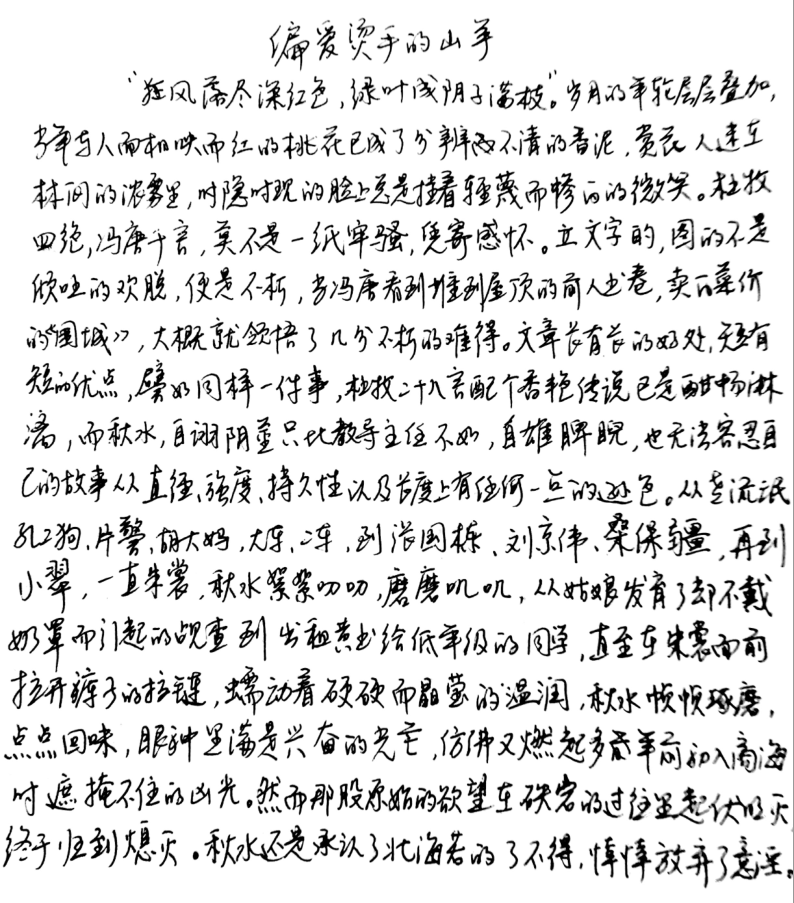 编爱烫手的山芋
"狂风落尽深红色，绿叶成阴子满枝"。岁月的年轮层层叠加，
当年与人面相映而红的桃花已成了分辨不清的香泥，赏花人速立
林间的浓雾里，时隐时现的脸上总是挂着轻蔑而惨白的微笑。杜牧
四绝，冯唐千言，莫不是一纸牢骚，凭寄感怀。立文字的，图的不是
倾吐的欢脱，便是不朽，当冯唐看到堆到屋顶的前人书卷，卖白菜价
的《围城》，大概就领悟了几分不朽的难得。文章长有长的好处，短有
短的优点，譬如同样一件事，杜牧二十八言配个香艳传说已是酣畅淋
漓，而秋水，自诩阴茎只比教导主任不如，自雄睥睨，也无法容忍自
己的故事从直径、强度、持久性以及长度上有任何一点的逊色。从老流氓
孔二狗、片警、胡大妈，大车、二车，到张国栋、刘京伟、桑保疆，再到
小翠，一直朱裳，秋水絮絮叨叨，磨磨叽叽，从姑娘发育了却不戴
奶罩而引起的觊查到出租黄书给低年级的同学，直至在朱裳面前
拉开裤子的拉链，蠕动着硬硬而晶莹的温润，秋水惯惯琢磨，
点点回味，眼神里满是兴奋的光芒，仿佛又燃起多年前初入商海
时遮掩不住的凶光。然而那股原始的欲望在砄宕的过往里起伏明灭
终于归到熄灭。秋水还是承认了北海若的了不得，悻悻放弃了意淫。